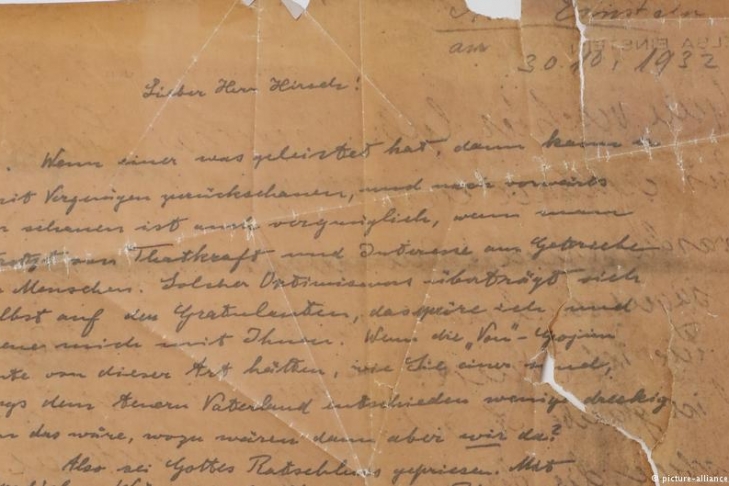 Einstein
am
30.10.1932
Lieber Herr Hirsch!
Wenn einer was geleistet hat, dann kann er
mit Vergnügen zurückschauen, und nach vorwärts
schauen ist auch vergnüglich, wenn man
von Thatkraft und Interesse am Getriebe
Menschen. Solcher Optimismus überträgt sich
selbst auf den Gratulanten, das spüre ich, und
mich mit Ihnen. Wenn die „Von"-Gojim
von dieser Art hätten, wie Sie einer sind,
dem teuern Vaterland entschieden weniger dreckig
das wäre, wozu wären dann aber wir da?
Also sei Gottes Ratschluss gepriesen. Mit
© picture-alliance